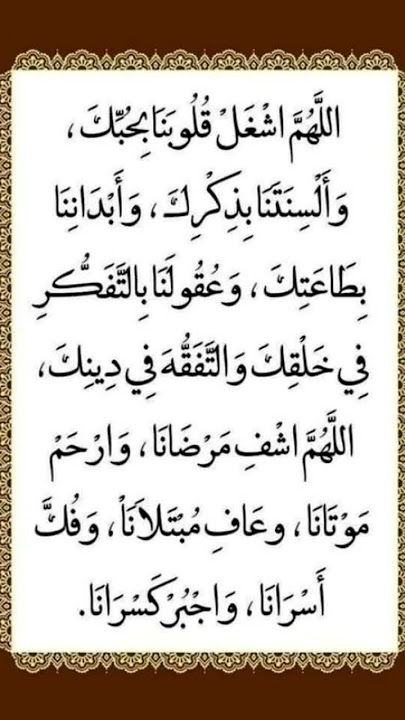 اللَّهُمَّ اشْغَلْ قُلُوبَنَا بِحُبِّكَ،
وَأَلْسِنَتَنَا بِذِكْرِكَ، وَأَبْدَانِنَا
بِطَاعَتِكَ، وَعُقُولَنَا بِالتَّفَكُّرِ
فِي خَلْقِكَ وَالتَّفَقُّهَ فِي دِينِكَ،
اللَّهُمَّ اشْفِ مَرْضَانَا، وَارْحَمْ
مَوْتَانَا، وعَافِ مُبْتَلاَنَاْ، وَفُكَّ
أَسْرَانَا، وَاجْبُرْ كَسْرَانَا.